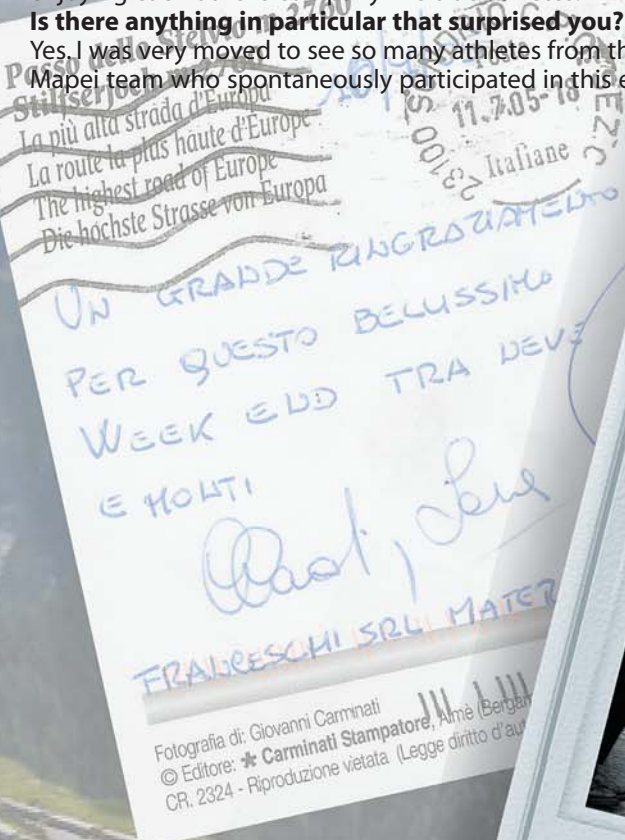 Is there anything in particular that surprised you?
Yes. I was very moved to see so many athletes from th
Mapei team who spontaneously participated in this e
Passo dello Stelvio m 2760
Stilfserjoch
La più alta strada d'Europa
La route la plus haute d'Europe
The highest road of Europe
Die höchste Strasse von Europa
11.7.05-18
23100
Italiane
UN GRANDE RINGRAZIAMENTO
PER QUESTO BELLISSIMO
WEEK END TRA NEVE
E MONTI
FRANCESCHI SRL MATER
Fotografia di: Giovanni Carminati
© Editore: * Carminati Stampatore, Almè (Bergam
CR. 2324 - Riproduzione vietata (Legge diritto d'aut